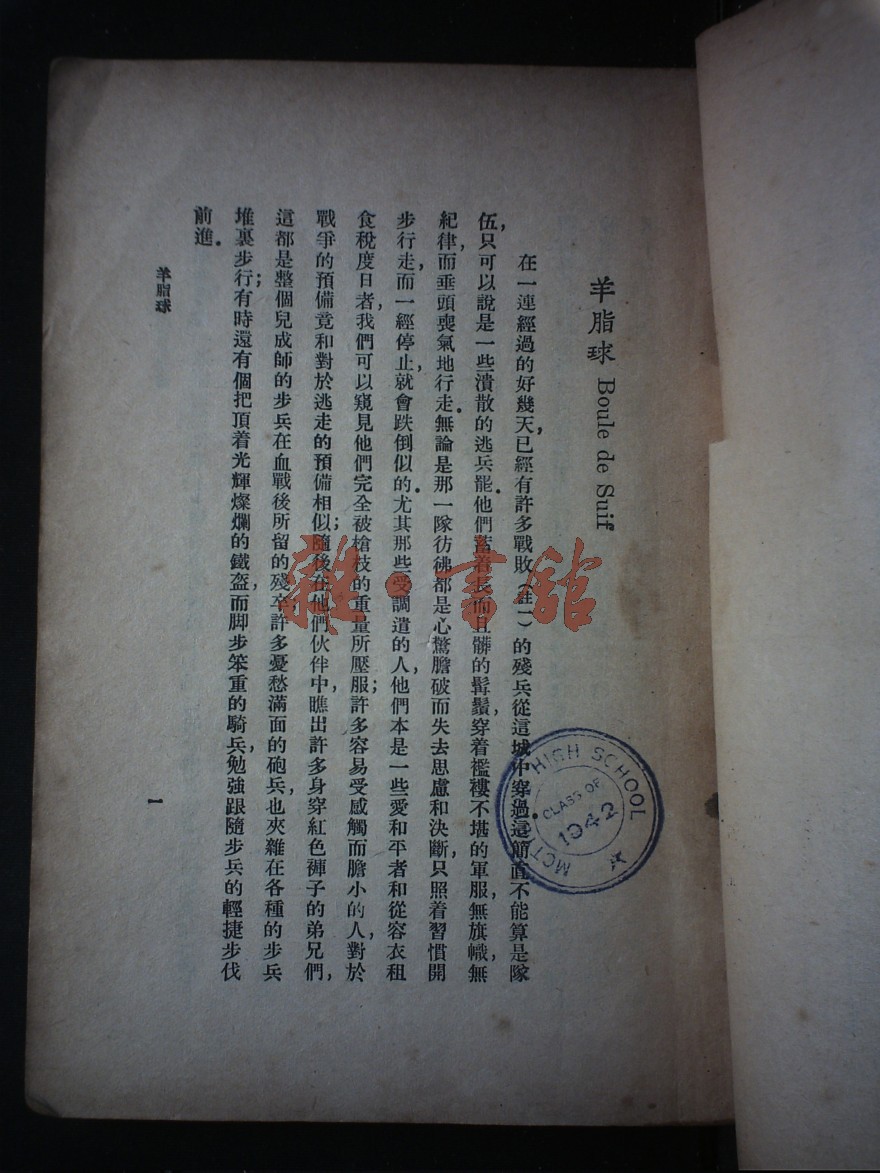 羊脂球 Boule de Suif
在一連經過的好幾天，已經有許多戰敗（註一）的殘兵從這城中穿過。這簡直不能算是隊
伍，只可以說是一些潰散的逃兵罷。他們蓄着長而且髒的髯鬚，穿着襤褸不堪的軍服，無旗幟，無
紀律，而垂頭喪氣地行走。無論是那一隊彷彿都是心驚膽破而失去思慮和決斷，只照着習慣開
步行走，而一經停止，就會跌倒似的。尤其那些受調遣的人，他們本是一些愛和平者和從容衣租
食稅度日者，我們可以窺見他們完全被槍枝的重量所壓服；許多容易受感觸而膽小的人，對於
戰爭的預備竟和對於逃走的預備相似；隨後在他們伙伴中，瞧出許多身穿紅色褲子的弟兄們，
這都是整個兒成師的步兵在血戰後所留的殘卒；許多憂愁滿面的砲兵，也夾雜在各種的步兵
堆裏步行；有時還有個把頂着光輝燦爛的鐵盔，而脚步笨重的騎兵，勉強跟隨步兵的輕捷步伐
前進。
羊脂球
一
雜·書館
MCTI HIGH SCHOOL
CLASS OF
1942